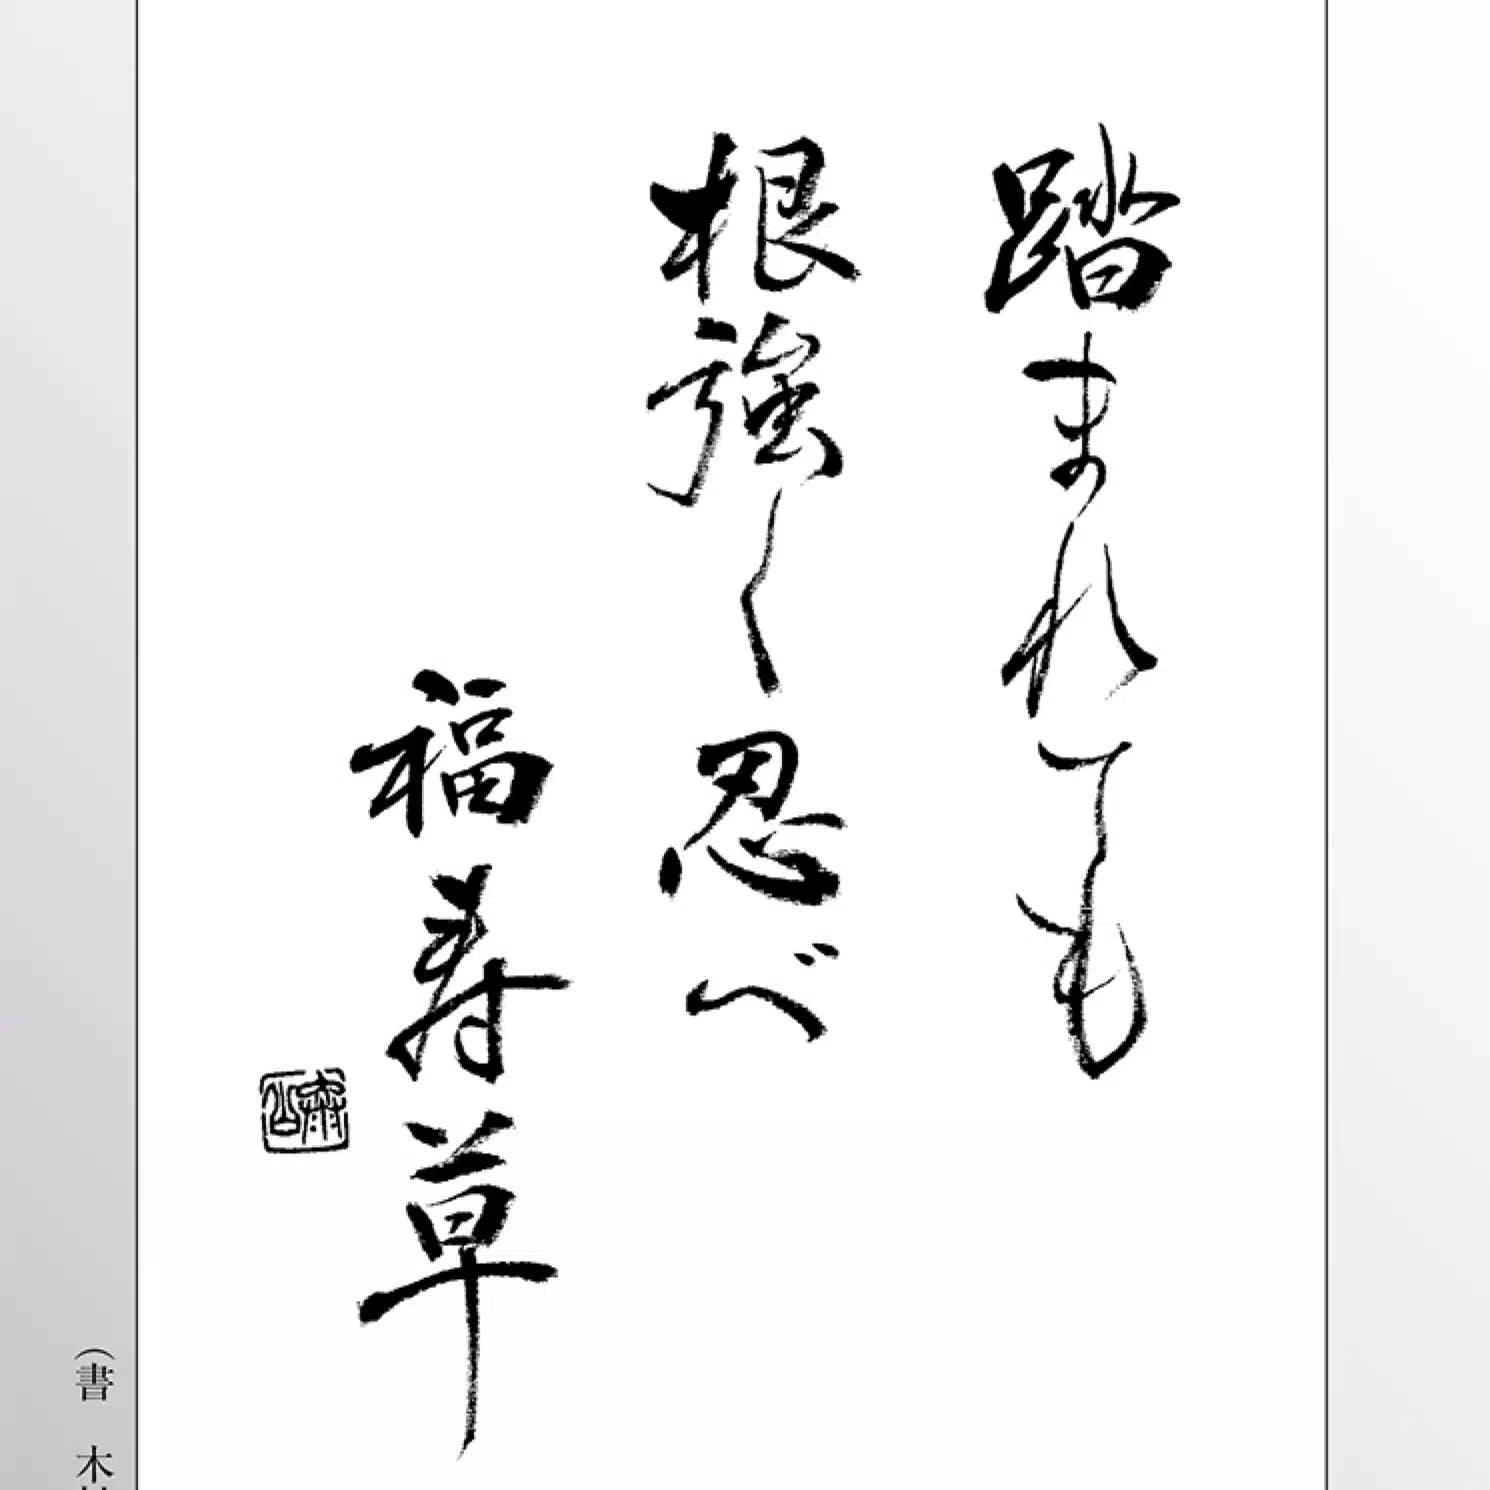 踏まれても
根強く忍べ
福寿草
（書　木